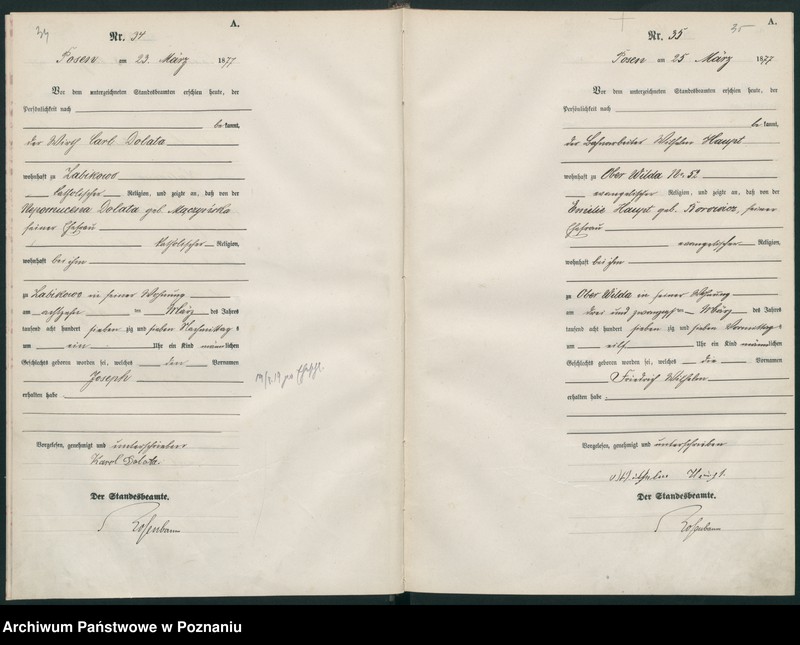 34
A.
Nr. 34
Posen am 23. März 1877
Vor dem unterzeichneten Standesbeamten erschien heute, der
Persönlichkeit nach
bekannt,
der Wirth Carl Dolata
wohnhaft zu Zabikowo
katholischer Religion, und zeigte an, daß von der
Nepomucena Dolata geb. Mączyńska
seiner Ehefrau
katholischer Religion,
wohnhaft bei ihm
zu Zabikowo in seiner Wohnung
am achtzehn ten März des Jahres
tausend acht hundert sieben zig und sieben Nachmittags
um ein Uhr ein Kind männlichen
Geschlechts geboren worden sei, welches den Vornamen
Joseph
erhalten habe
Vorgelesen, genehmigt und unterschrieben
Karol Dolata.
Der Standesbeamte.
Rosenbaum
35
A.
Nr. 35
Posen am 25. März 1877
Vor dem unterzeichneten Standesbeamten erschien heute, der
Persönlichkeit nach
bekannt,
der Bahnarbeiter Wilhelm Haupt
wohnhaft zu Ober Wilda Nr. 52
evangelischer Religion, und zeigte an, daß von der
Emilie Haupt geb. Borowicz, seiner
Ehefrau
evangelischer Religion,
wohnhaft bei ihm
zu Ober Wilda in seiner Wohnung
am drei und zwanzigsten März des Jahres
tausend acht hundert sieben zig und sieben Vormittags
um elf Uhr ein Kind männlichen
Geschlechts geboren worden sei, welches die Vornamen
Friedrich Wilhelm
erhalten habe
Vorgelesen, genehmigt und unterschrieben
Wilhelm Haupt.
Der Standesbeamte.
Rosenbaum
Archiwum Państwowe w Poznaniu